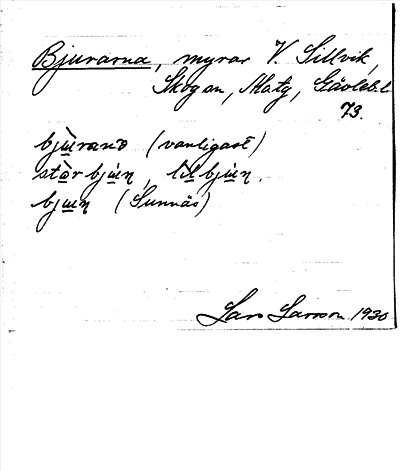 Bjurarna, myrar V. Sillvik,
Skogan, Maty, Gävleb.l.
73.
bjùranə (vanligast)
stàr bjúɳ, lìl bjúɳ.
bjuɳ (Sunnäs)
Lars Larsson 1930